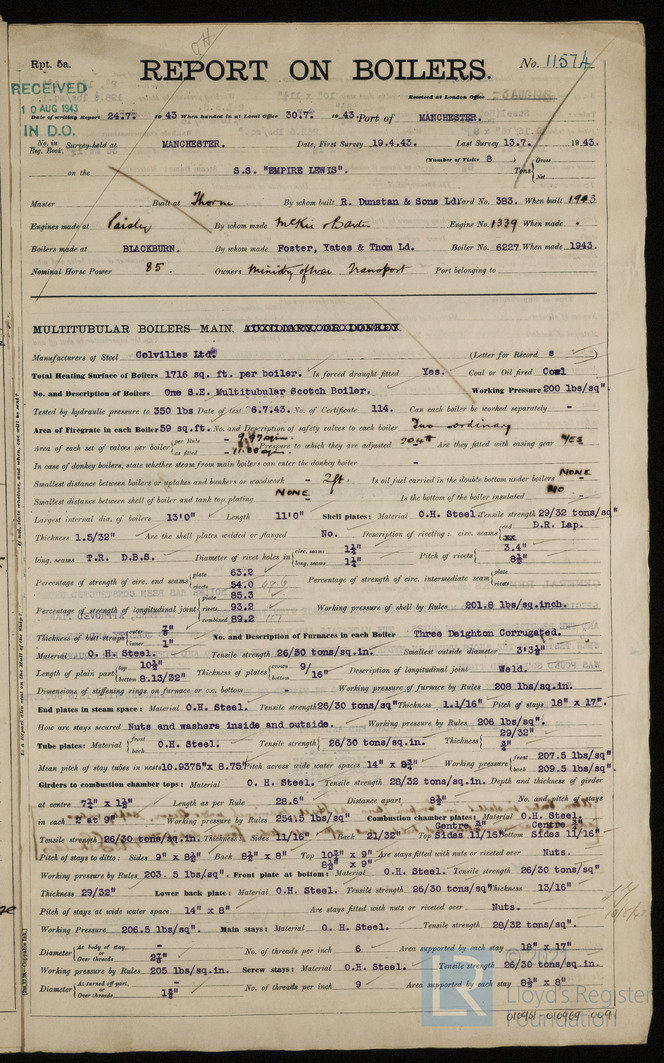 Rpt. 5a.
REPORT ON BOILERS.
No. 11574
RECEIVED
10 AUG 1943
IN D.O.
Received at London Office
Date of writing Report 24.7. 1943 When handed in at Local Office 30.7. 1943. Port of MANCHESTER.
No. in Reg. Book. Survey held at MANCHESTER. Date, First Survey 19.4.43. Last Survey 13.7. 1943.
(Number of Visits 8 )
on the S.S. "EMPIRE LEWIS". Tons { Gross Net
Master Built at Thorne By whom built R. Dunstan & Sons Ld. Yard No. 383. When built 1943
Engines made at Paisley By whom made McKie & Baxter Engine No. 1339 When made "
Boilers made at BLACKBURN. By whom made Foster, Yates & Thom Ld. Boiler No. 6227 When made 1943.
Nominal Horse Power 85. Owners Ministry of War Transport Port belonging to
MULTITUBULAR BOILERS MAIN, AUXILIARY, OR DONKEY.
Manufacturers of Steel Colvilles Ltd. (Letter for Record s )
Total Heating Surface of Boilers 1716 sq. ft. per boiler. Is forced draught fitted Yes. Coal or Oil fired Coal
No. and Description of Boilers One S.E. Multitubular Scotch Boiler. Working Pressure 200 lbs/sq".
Tested by hydraulic pressure to 350 lbs Date of test 6.7.43. No. of Certificate 114. Can each boiler be worked separately -
Area of Firegrate in each Boiler 59 sq.ft. No. and Description of safety valves to each boiler Two ordinary
Area of each set of valves per boiler { per Rule as fitted Pressure to which they are adjusted 204 Are they fitted with easing gear YES
In case of donkey boilers, state whether steam from main boilers can enter the donkey boiler -
Smallest distance between boilers or uptakes and bunkers or woodwork - 2ft. Is oil fuel carried in the double bottom under boilers NONE
Smallest distance between shell of boiler and tank top plating NONE Is the bottom of the boiler insulated NO
Largest internal dia. of boilers 13'0" Length 11'0" Shell plates: Material O.H. Steel. Tensile strength 29/32 tons/sq"
Thickness 1.5/32" Are the shell plates welded or flanged No. Description of riveting: circ. seams { end D.R. Lap. xx
long. seams T.R. D.B.S. Diameter of rivet holes in { circ. seams 1¼" long. seams 1¼" Pitch of rivets { 3.4" 8½"
Percentage of strength of circ. end seams { plate 63.2 rivets 54.0 Percentage of strength of circ. intermediate seam { plate rivets
Percentage of strength of longitudinal joint { plate 85.3 rivets 93.2 combined 89.2 Working pressure of shell by Rules 201.8 lbs/sq.inch.
Thickness of butt straps { outer ⅞" inner 1" No. and Description of Furnaces in each Boiler Three Deighton Corrugated.
Material O. H. Steel. Tensile strength 26/30 tons/sq.in. Smallest outside diameter 3'3½"
Length of plain part { top 10½" bottom 8.13/32" Thickness of plates { crown bottom 9/16" Description of longitudinal joint Weld.
Dimensions of stiffening rings on furnace or c.c. bottom - Working pressure of furnace by Rules 208 lbs/sq.in.
End plates in steam space: Material O.H. Steel. Tensile strength 26/30 tons/sq" Thickness 1.1/16" Pitch of stays 18" x 17".
How are stays secured Nuts and washers inside and outside. Working pressure by Rules 206 lbs/sq".
Tube plates: Material { front back O.H. Steel. Tensile strength { 26/30 tons/sq.in. Thickness { 29/32" ¾"
Mean pitch of stay tubes in nests 10.9375"x 8.75" Pitch across wide water spaces 14" x 8¾" Working pressure { front 207.5 lbs/sq" back 209.5 lbs/sq"
Girders to combustion chamber tops: Material O. H. Steel. Tensile strength 28/32 tons/sq.in. Depth and thickness of girder
at centre 7¼" x 1½" Length as per Rule 28.6" Distance apart 8½" No. and pitch of stays
in each 2 at 9" Working pressure by Rules 254.5 lbs/sq" Combustion chamber plates: Material O.H. Steel.
Tensile strength 26/30 tons/sq.in. Thickness: Sides 11/16" Back 21/32" Top Centre ¾" Sides 11/16" Bottom Centre ¾" Sides 11/16"
Pitch of stays to ditto: Sides 9" x 8½" Back 8½" x 8" Top 10¾" x 9" 8½" x 9" Are stays fitted with nuts or riveted over Nuts.
Working pressure by Rules 203.5 lbs/sq". Front plate at bottom: Material O.H. Steel. Tensile strength 26/30 tons/sq"
Thickness 29/32" Lower back plate: Material O.H. Steel. Tensile strength 26/30 tons/sq" Thickness 13/16"
Pitch of stays at wide water space 14" x 8" Are stays fitted with nuts or riveted over Nuts.
Working Pressure 206.5 lbs/sq". Main stays: Material O. H. Steel. Tensile strength 28/32 tons/sq".
Diameter { At body of stay, or Over threads - 2⅞" No. of threads per inch 6 Area supported by each stay 18" x 17"
Working pressure by Rules 205 lbs/sq.in. Screw stays: Material O.H. Steel. Tensile strength 26/30 tons/sq.in.
Diameter { At turned off part, or Over threads - 1⅝" No. of threads per inch 9 Area supported by each stay 8½" x 8"
© 2021
LR
Lloyd's Register
Foundation
010961-010969-0091